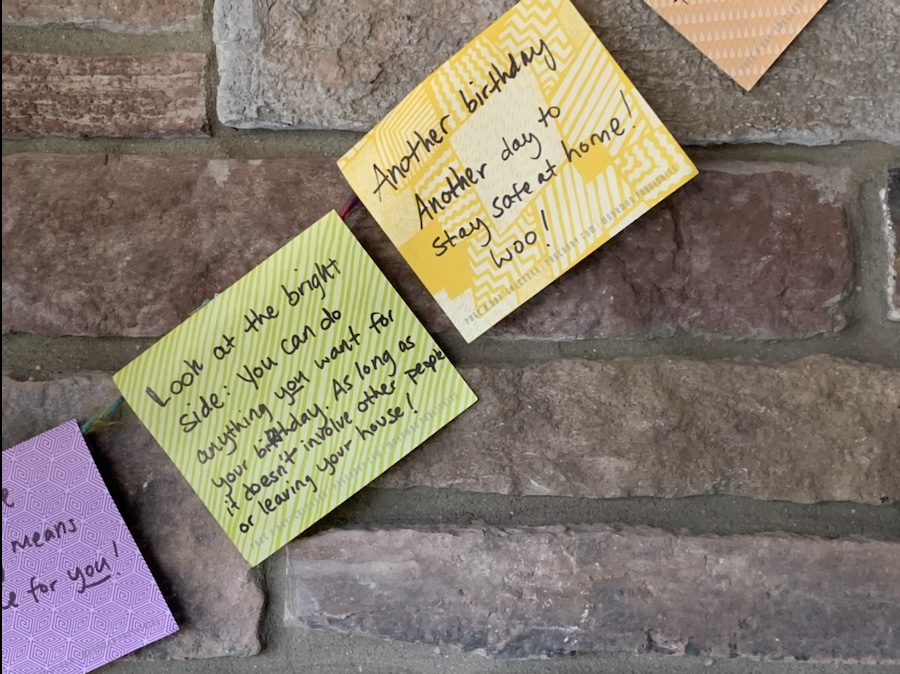 Another birthday
Another day to
stay safe at home!
woo!
Look at the bright
side: You can do
anything you want for
your birthday. As long as
it doesn't involve other people
or leaving your house!
means
for you!